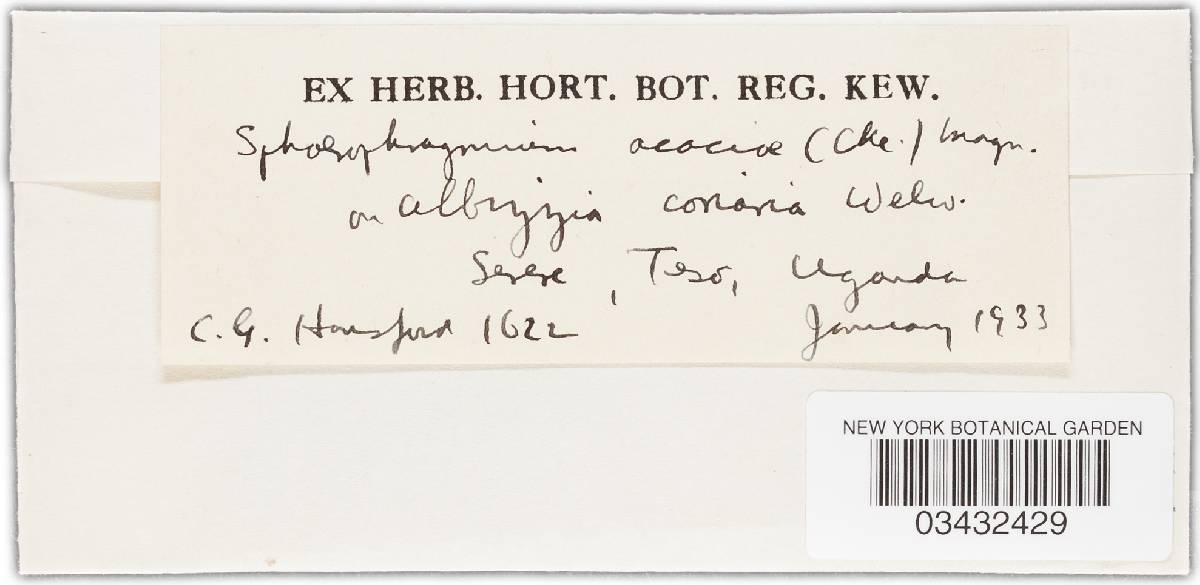 EX HERB. HORT. BOT. REG. KEW.
Sphaerophragmium acaciae (Cke.) Magn.
on Albizzia coriaria Welw.
Serere, Teso, Uganda
C. G. Hansford 1622 January 1933
NEW YORK BOTANICAL GARDEN
03432429